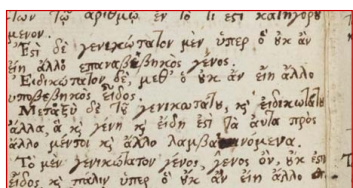 των τῷ ἀριθμῷ ἐν τῷ τί ἐστι κατηγορού
μενον.
Ἔστι δὲ γενικώτατον μὲν ὑπὲρ ὃ οὐκ ἂν
εἴη ἄλλο ἐπαναβεβηκὸς γένος.
Εἰδικώτατον δὲ, μεθ' ὃ οὐκ ἂν εἴη ἄλλο
ὑποβεβηκὸς εἶδος.
Μεταξὺ δὲ τοῦ γενικωτάτου, καὶ εἰδικωτάτου
ἄλλα, ἃ καὶ γένη καὶ εἴδη ἐστὶ τὰ αὐτὰ πρὸς
ἄλλο μέντοι καὶ ἄλλο λαμβανόμενα.
Τὸ μὲν γενικώτατον γένος, γένος ὂν, οὐκ ἔστι
εἶδος καὶ πάλιν ὑπὲρ ὃ οὐκ ἂν εἴη ἄλλο ἐπ